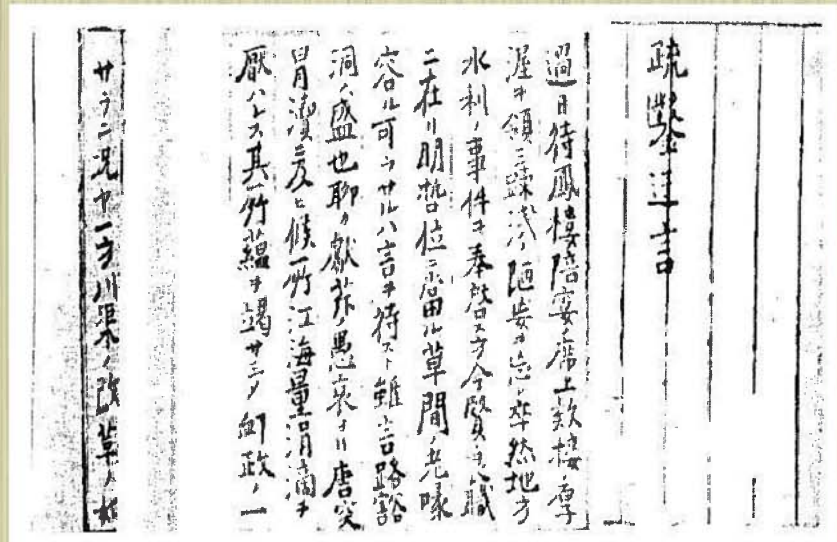 疏鑿迂言
過日待鳳樓陪宴ノ席上欵接ノ厚
渥ヲ領シ踈淺ノ陋ヲ忘レ卒然地方
水利ノ事件ヲ奉啓ス方今賢主職
ニ在リ明哲位ニ當ル草間ノ光喙
容ル可ラサルハ言ヲ待スト雖言路豁
洞ノ盛也聊カ獻芹ノ愚衷ヨリ唐突
冒瀆ニ及ヒ候所江海量涓滴ヲ
厭ハレス其所蘊ヲ竭サシメ御政ノ一
サラニ况ヤ一方川渠ノ改革ノ如